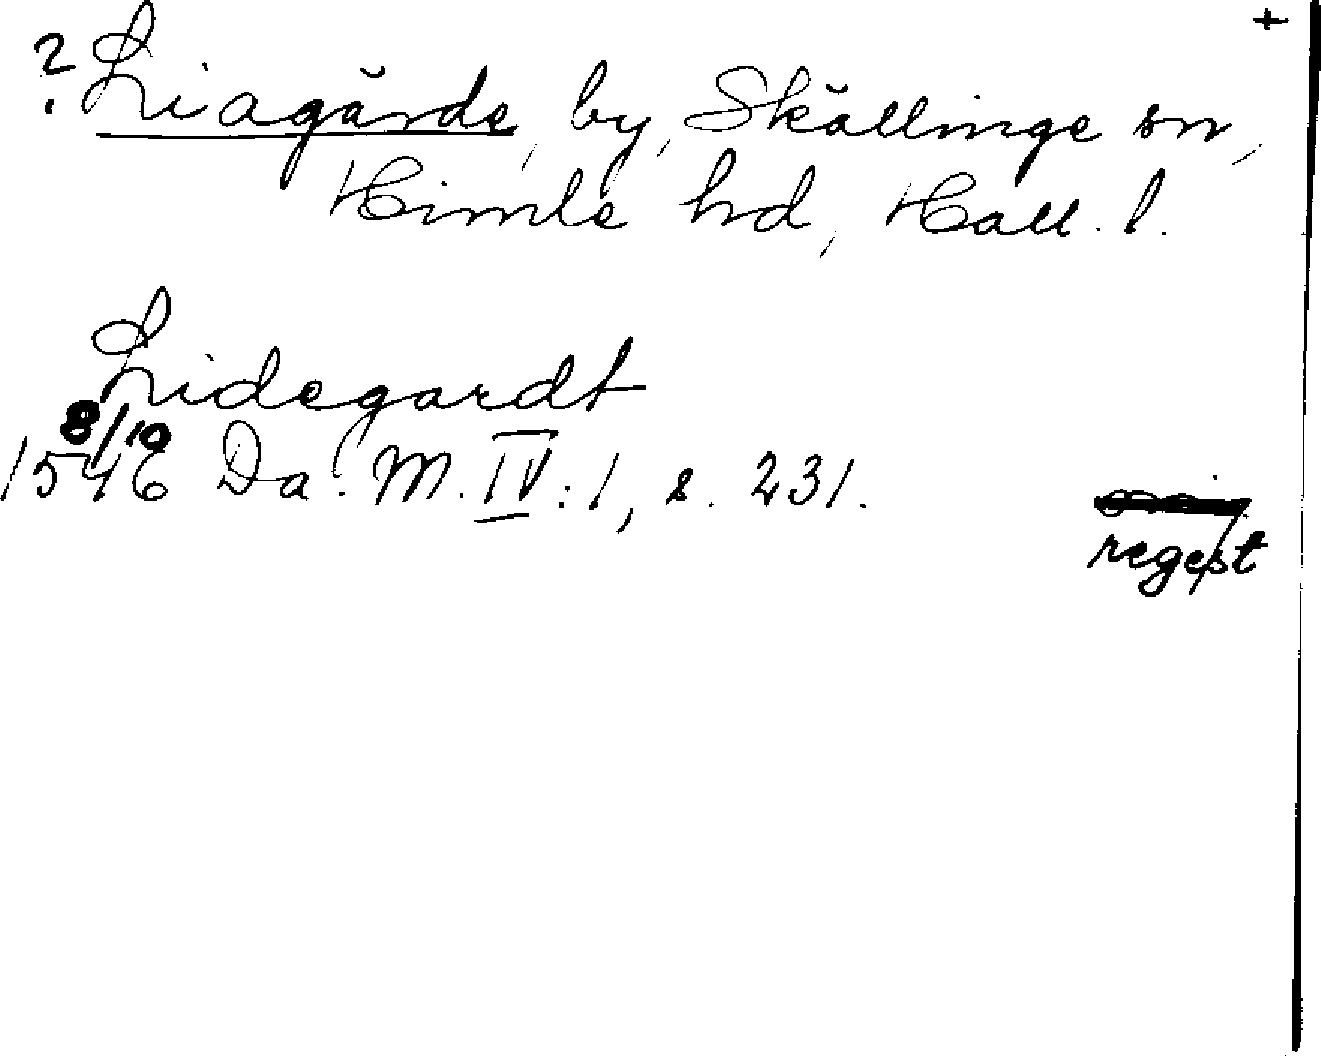 +
? Liagärde, by, Skällinge sn,
Himle hd, Hall. l.
Lidegardt
8/10
1546 Da. M. IV:1, s. 231.
regest